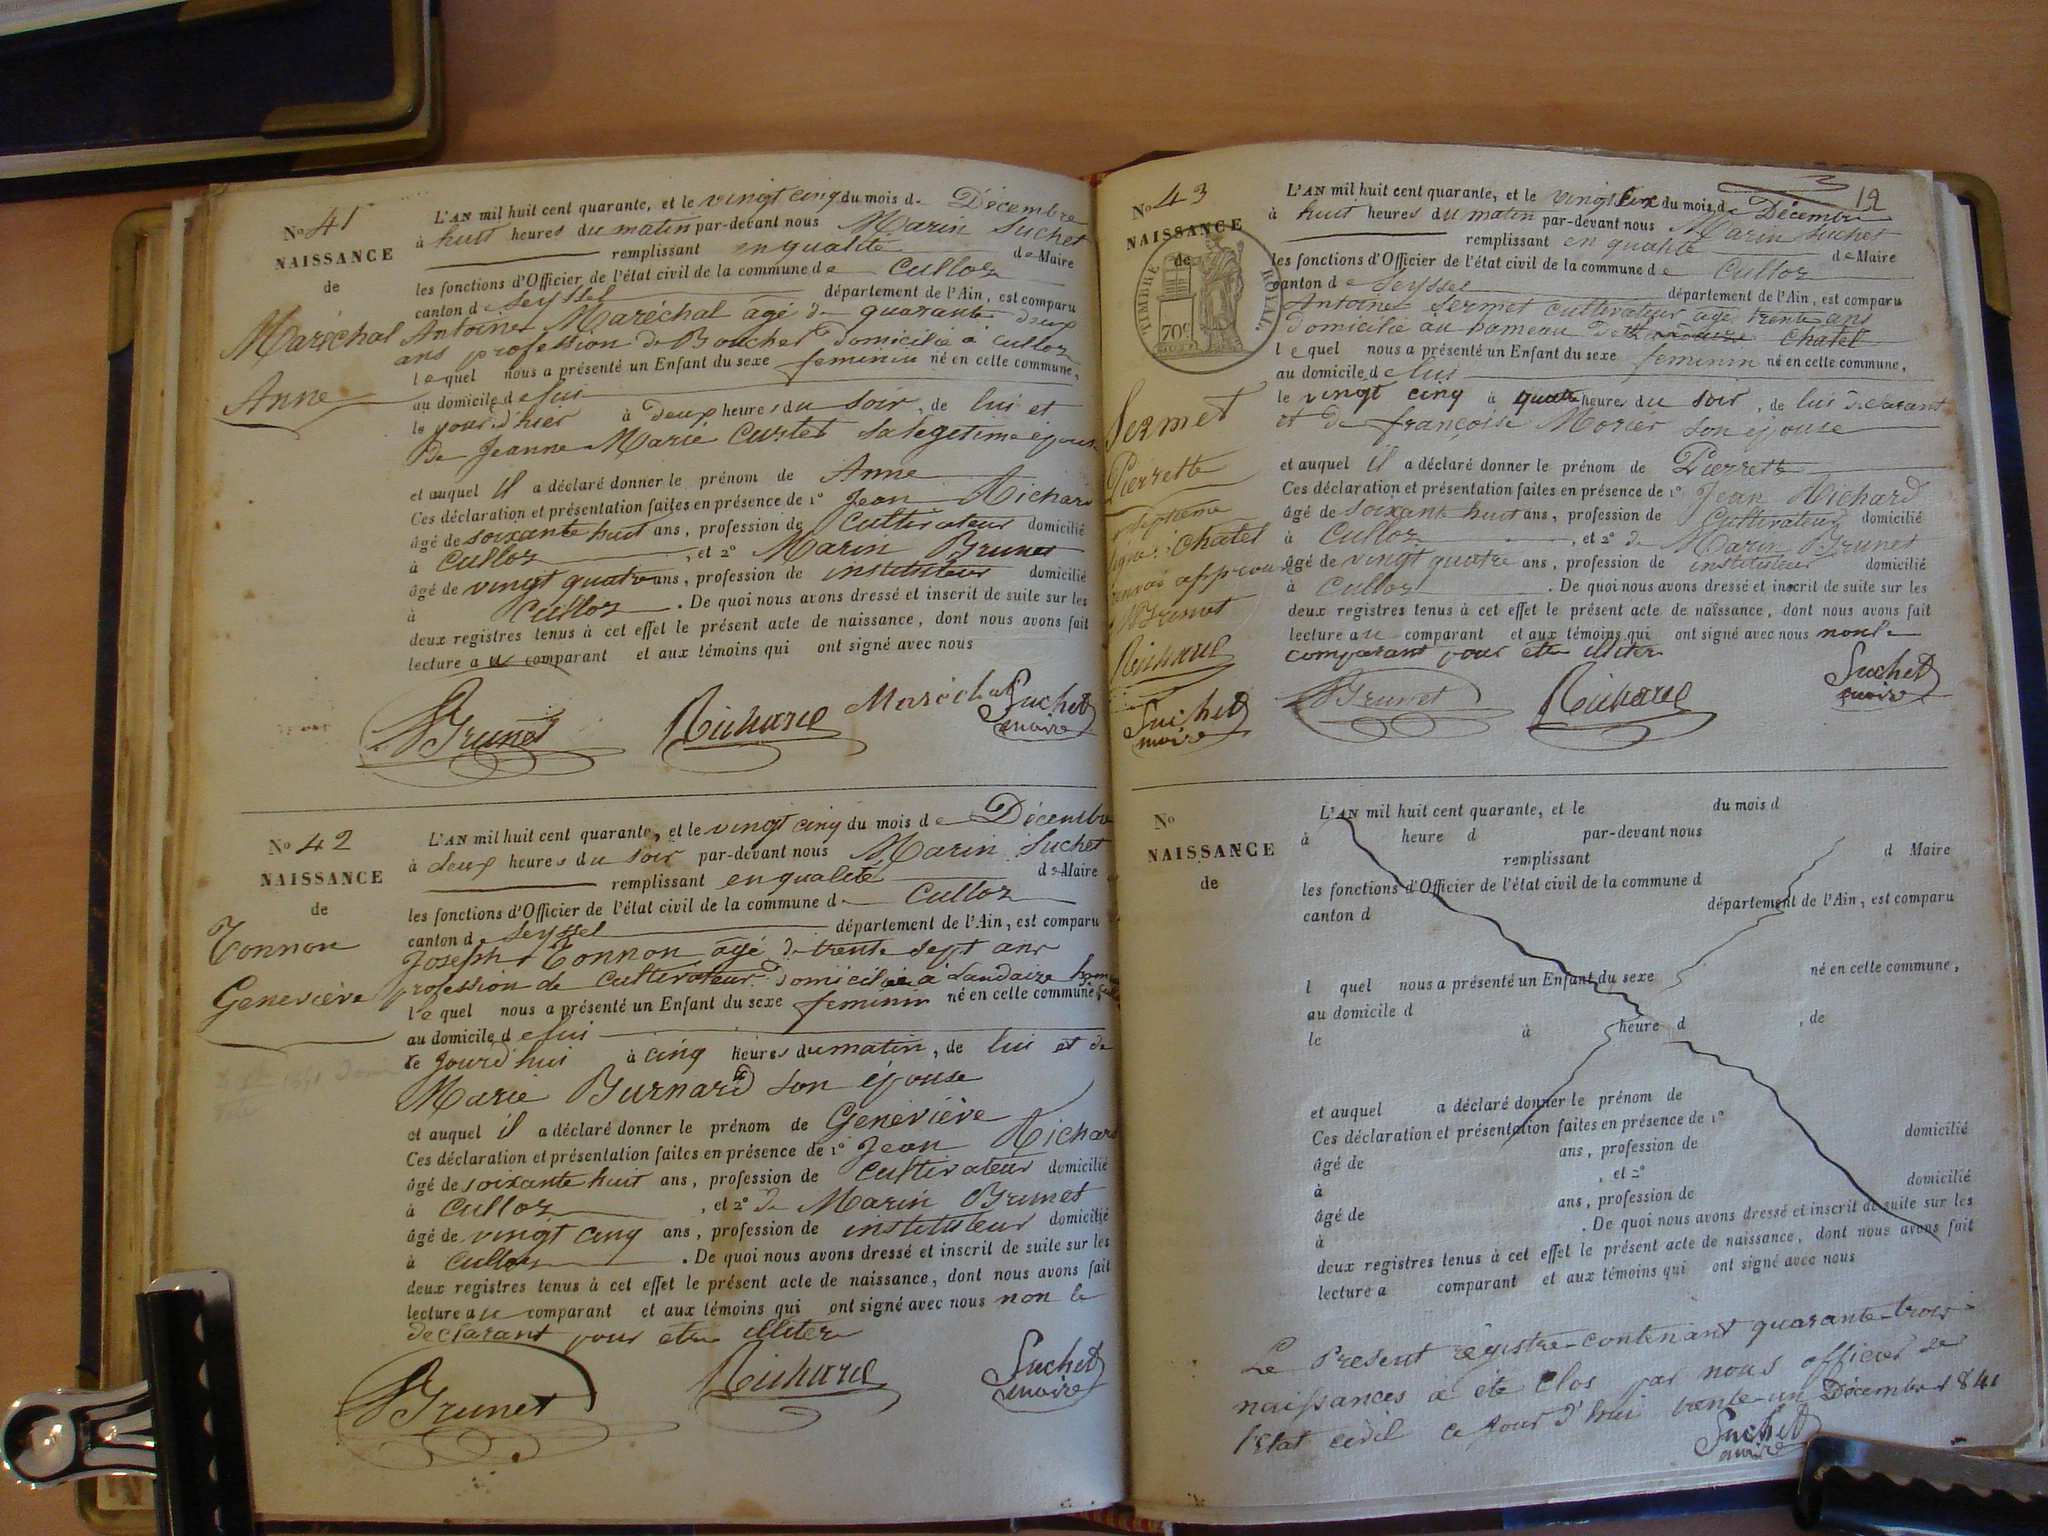 No 41
NAISSANCE
de
Maréchal
Anne
L'AN mil huit cent quarante, et le vingt cinq du mois de Décembre
à huit heures du matin par-devant nous Marin Suchet
remplissant en qualité de Maire
les fonctions d'Officier de l'état civil de la commune de Culloz
canton de Seyssel département de l'Ain, est comparu
Antoine Maréchal agé de quarante deux
ans profession de Boucher domicilié à Culloz
lequel nous a présenté un Enfant du sexe feminin né en cette commune,
au domicile de lui
le jour d'hier à deux heures du soir, de lui et
de Jeanne Marie Curtet sa legetime épouse
et auquel il a déclaré donner le prénom de Anne
Ces déclaration et présentation faites en présence de 1° Jean Richard
âgé de soixante huit ans, profession de Cultivateur domicilié
à Culloz, et 2° Marin Brunet
âgé de vingt quatre ans, profession de instituteur domicilié
à Culloz. De quoi nous avons dressé et inscrit de suite sur les
deux registres tenus à cet effet le présent acte de naissance, dont nous avons fait
lecture au comparant et aux témoins qui ont signé avec nous
Brunet Richard Maréchal Suchet
maire
No 42
NAISSANCE
de
Tonnon
Geneviève
L'AN mil huit cent quarante, et le vingt cinq du mois de Décembre
à deux heures du soir par-devant nous Marin Suchet
remplissant en qualité de Maire
les fonctions d'Officier de l'état civil de la commune de Culloz
canton d. Seyssel département de l'Ain, est comparu
Joseph Tonnon agé de trente sept ans
profession de cultivateur domicilié à Landaize
lequel nous a présenté un Enfant du sexe feminin né en cette commune,
au domicile de lui
le jourd'hui à cinq heures du matin, de lui et de
Marie Burnard son épouse
et auquel il a déclaré donner le prénom de Geneviève
Ces déclaration et présentation faites en présence de 1° Jean Richard
âgé de soixante huit ans, profession de Cultivateur domicilié
à Culloz, et 2° de Marin Brunet
âgé de vingt cinq ans, profession de instituteur domicilié
à Culloz. De quoi nous avons dressé et inscrit de suite sur les
deux registres tenus à cet effet le présent acte de naissance, dont nous avons fait
lecture au comparant et aux témoins qui ont signé avec nous non le
declarant pour etre illiter
Brunet Richard Suchet
maire
12
No 43
NAISSANCE
de
TIMBRE ROYAL.
70c
Sermet
Pierrette
Chatel
Brunet
Richard
Suchet
maire
L'AN mil huit cent quarante, et le vingt six du mois de Décembre
à huit heures du matin par-devant nous Marin Suchet
remplissant en qualité de Maire
les fonctions d'Officier de l'état civil de la commune de Culloz
canton de Seyssel département de l'Ain, est comparu
Antoine Sermet cultivateur agé trente ans
domicilié au hameau de Chatel
lequel nous a présenté un Enfant du sexe feminin né en cette commune,
au domicile de lui
le vingt cinq à quatre heures du soir, de lui declarant
et de françoise Morier son épouse
et auquel il a déclaré donner le prénom de Pierrette
Ces déclaration et présentation faites en présence de 1° Jean Richard
âgé de soixante huit ans, profession de Cultivateur domicilié
à Culloz, et 2° de Marin Brunet
âgé de vingt quatre ans, profession de instituteur domicilié
à Culloz. De quoi nous avons dressé et inscrit de suite sur les
deux registres tenus à cet effet le présent acte de naissance, dont nous avons fait
lecture au comparant et aux témoins qui ont signé avec nous non le
comparant pour etre illiter
Brunet Richard Suchet
maire
No
NAISSANCE
de
L'AN mil huit cent quarante, et le du mois d
à heure d par-devant nous
remplissant d Maire
les fonctions d'Officier de l'état civil de la commune d
canton d département de l'Ain, est comparu
l quel nous a présenté un Enfant du sexe né en cette commune,
au domicile d
le à heure d , de
et auquel a déclaré donner le prénom de
Ces déclaration et présentation faites en présence de 1°
âgé de ans, profession de domicilié
à , et 2°
âgé de ans, profession de domicilié
à . De quoi nous avons dressé et inscrit de suite sur les
deux registres tenus à cet effet le présent acte de naissance, dont nous avons fait
lecture a comparant et aux témoins qui ont signé avec nous
Le Present registre contenant quarante-trois
naissances a été Clos par nous officier de
l'Etat civil ce jour d'hui trente-un Décembre 1841
Suchet
maire